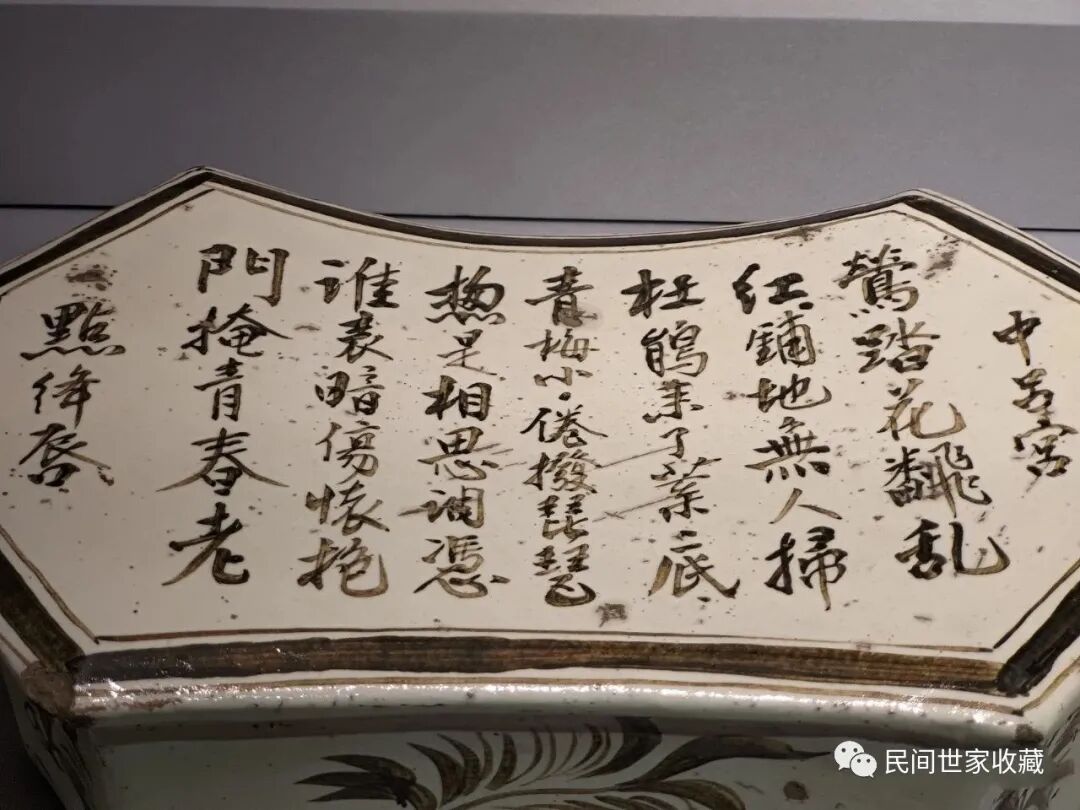 中吕宫
鶯踏花飜乱
紅鋪地無人掃
杜鵑来了葉底
青梅小倦撥琵琶
惣是相思調憑
誰表暗傷懷抱
門掩青春老
點絳唇
民间世家收藏